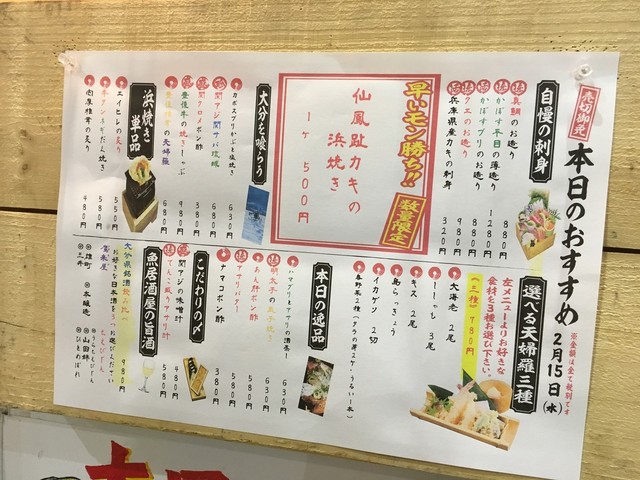 本日のおすすめ
売切御免
2月15日(水)
※金額は全て税別です
自慢の刺身
真鯛のお造り 880円
かぼす平目の薄造り 1280円
かぼすブリのお造り 880円
クエのお造り 980円
兵庫県産カキの刺身 320円
早いモン勝ち!!
数量限定
仙鳳趾カキの
浜焼き
1ヶ 500円
大分を喰らう
カボスブリとぶと塩焼き 630円
関アジ 関サバ
関タロメポン酢 380円
豊後牛の焼きしゃぶ 980円
の天婦羅 680円
浜焼き
単品
エイヒレの炙り 550円
牛タンネギだん焼き 580円
肉厚椎茸の炙り 480円
選べる天婦羅三種
左メニューよりお好きな
食材を3種お選び下さい。
(三種) 780円
大海老 2尾
キス 2尾
ししゃも 3尾
島らっきょう
イカゲソ 2切
本日の逸品
ハマグリとアサリの酒蒸し 630円
明太子の 630円
あん肝ポン酢 630円
アサリバター 580円
ナマコポン酢 380円
こだわりの〆
関アジの味噌汁 480円
てんこ盛りアサリ汁 580円
魚居酒屋の旨酒
大分県銘酒飲み比べ 980円
お好きな日本酒を3つお選びください
鷹来屋
雄町
本醸造
山田錦
三井
ひとめぼれ